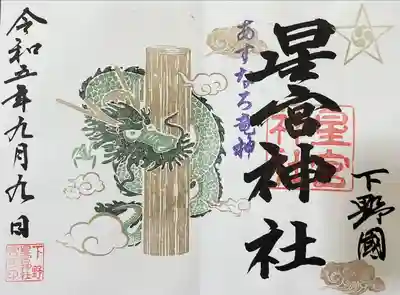 下野國
星宮神社
あすなろ竜神
星宮神社
令和五年九月九日